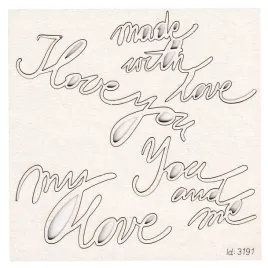 made
with
love
I love you
You
and
me
my love
Id: 3191